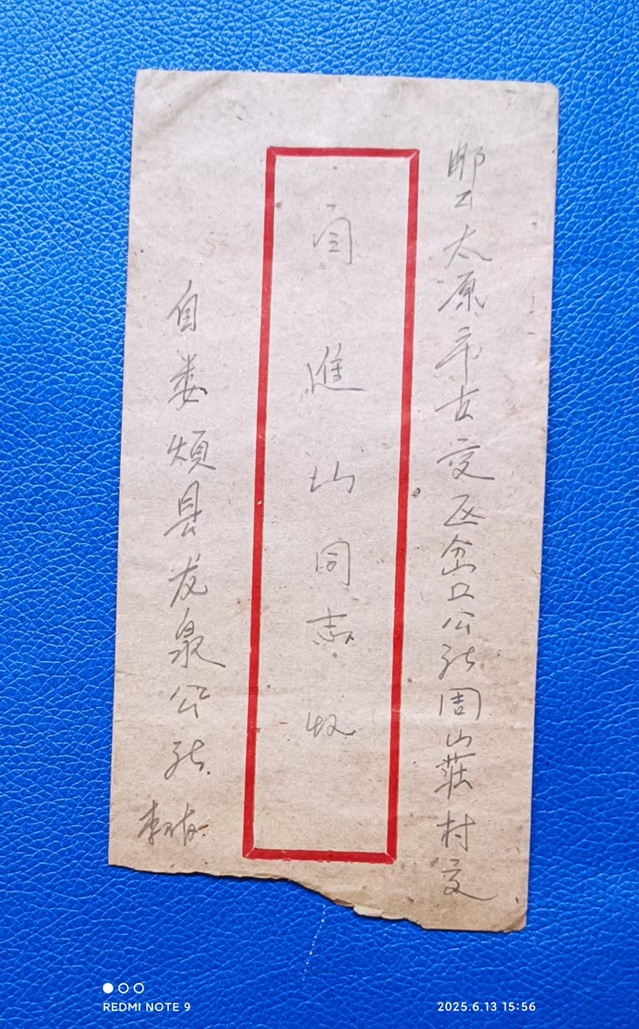 邮至太原市古交区岔口公社周山莊村交
進山同志收
自娄烦县龙泉公社
REDMI NOTE 9
2025.6.13 15:56